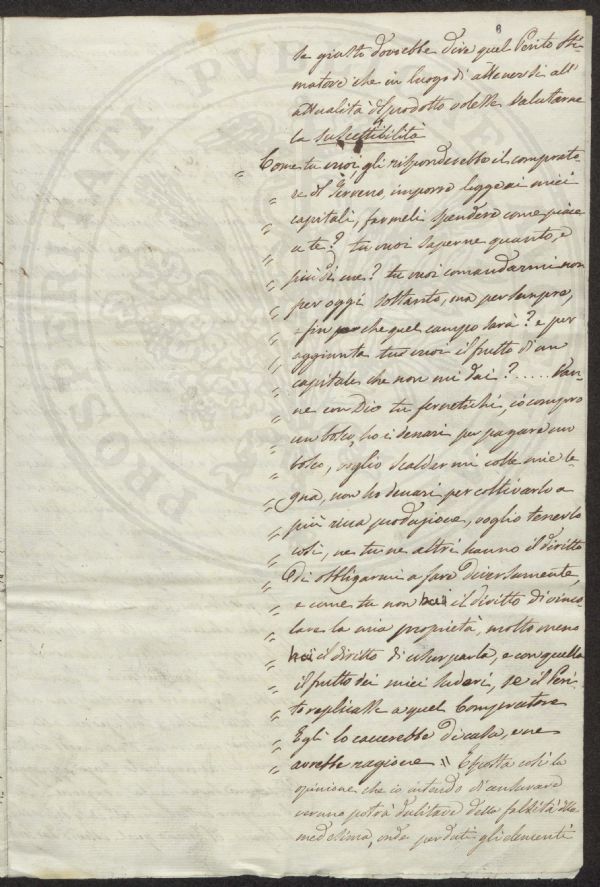 se giusto dovrebbe dire quel Perito Sti-
matore che in luogo di attenersi all'
attualità del prodotto volesse valutarne
la suscettibilità
" Come tu vuoi, gli risponderebbe il comprato-
" re del Terreno, imporre legge ai miei
" capitali, farmeli spendere come piace
" a te? tu vuoi saperne quanto, e
" più di me? tu vuoi comandarmi non
" per oggi soltanto, ma per sempre,
" finche quel campo sarà? e per
" aggiunta tu vuoi il frutto di un
" capitale che non mi dai?..... Van-
" ne con Dio tu fernetichi, io compro
" un bosco, ho i denari per pagare un
" bosco, voglio scaldarmi colle mie le-
" gna, non ho denari per coltivarlo a
" più ricca produzione, voglio tenerlo
" così, ne tu ne altri hanno il diritto
" di obbligarmi a fare diversamente,
" e come tu non hai il diritto di vinco-
" lare la mia proprietà, molto meno
" hai il diritto di usurparla, e con quella
" il frutto dei miei sudori, se il Peri-
" to replicasse a quel Compratore
" Egli lo caccerebbe di casa, e ne
" avrebbe ragione " Esposta così la
opinione che io intendo di censurare
veruno potrà dubitare della falsità della
medesima, onde perduti gli elementi
PROSPERITATI PVBLICAE